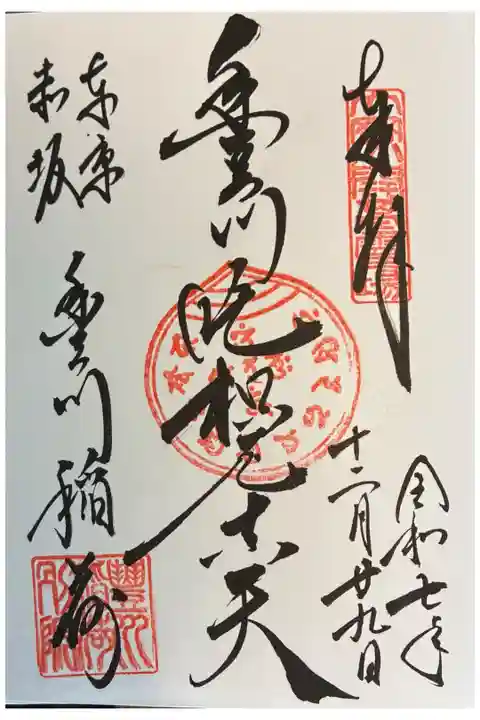 奉拝
令和七年
十二月廿九日
豊川吒枳尼真天
東京
赤坂
豊川稲荷
豐川
稲荷
別院